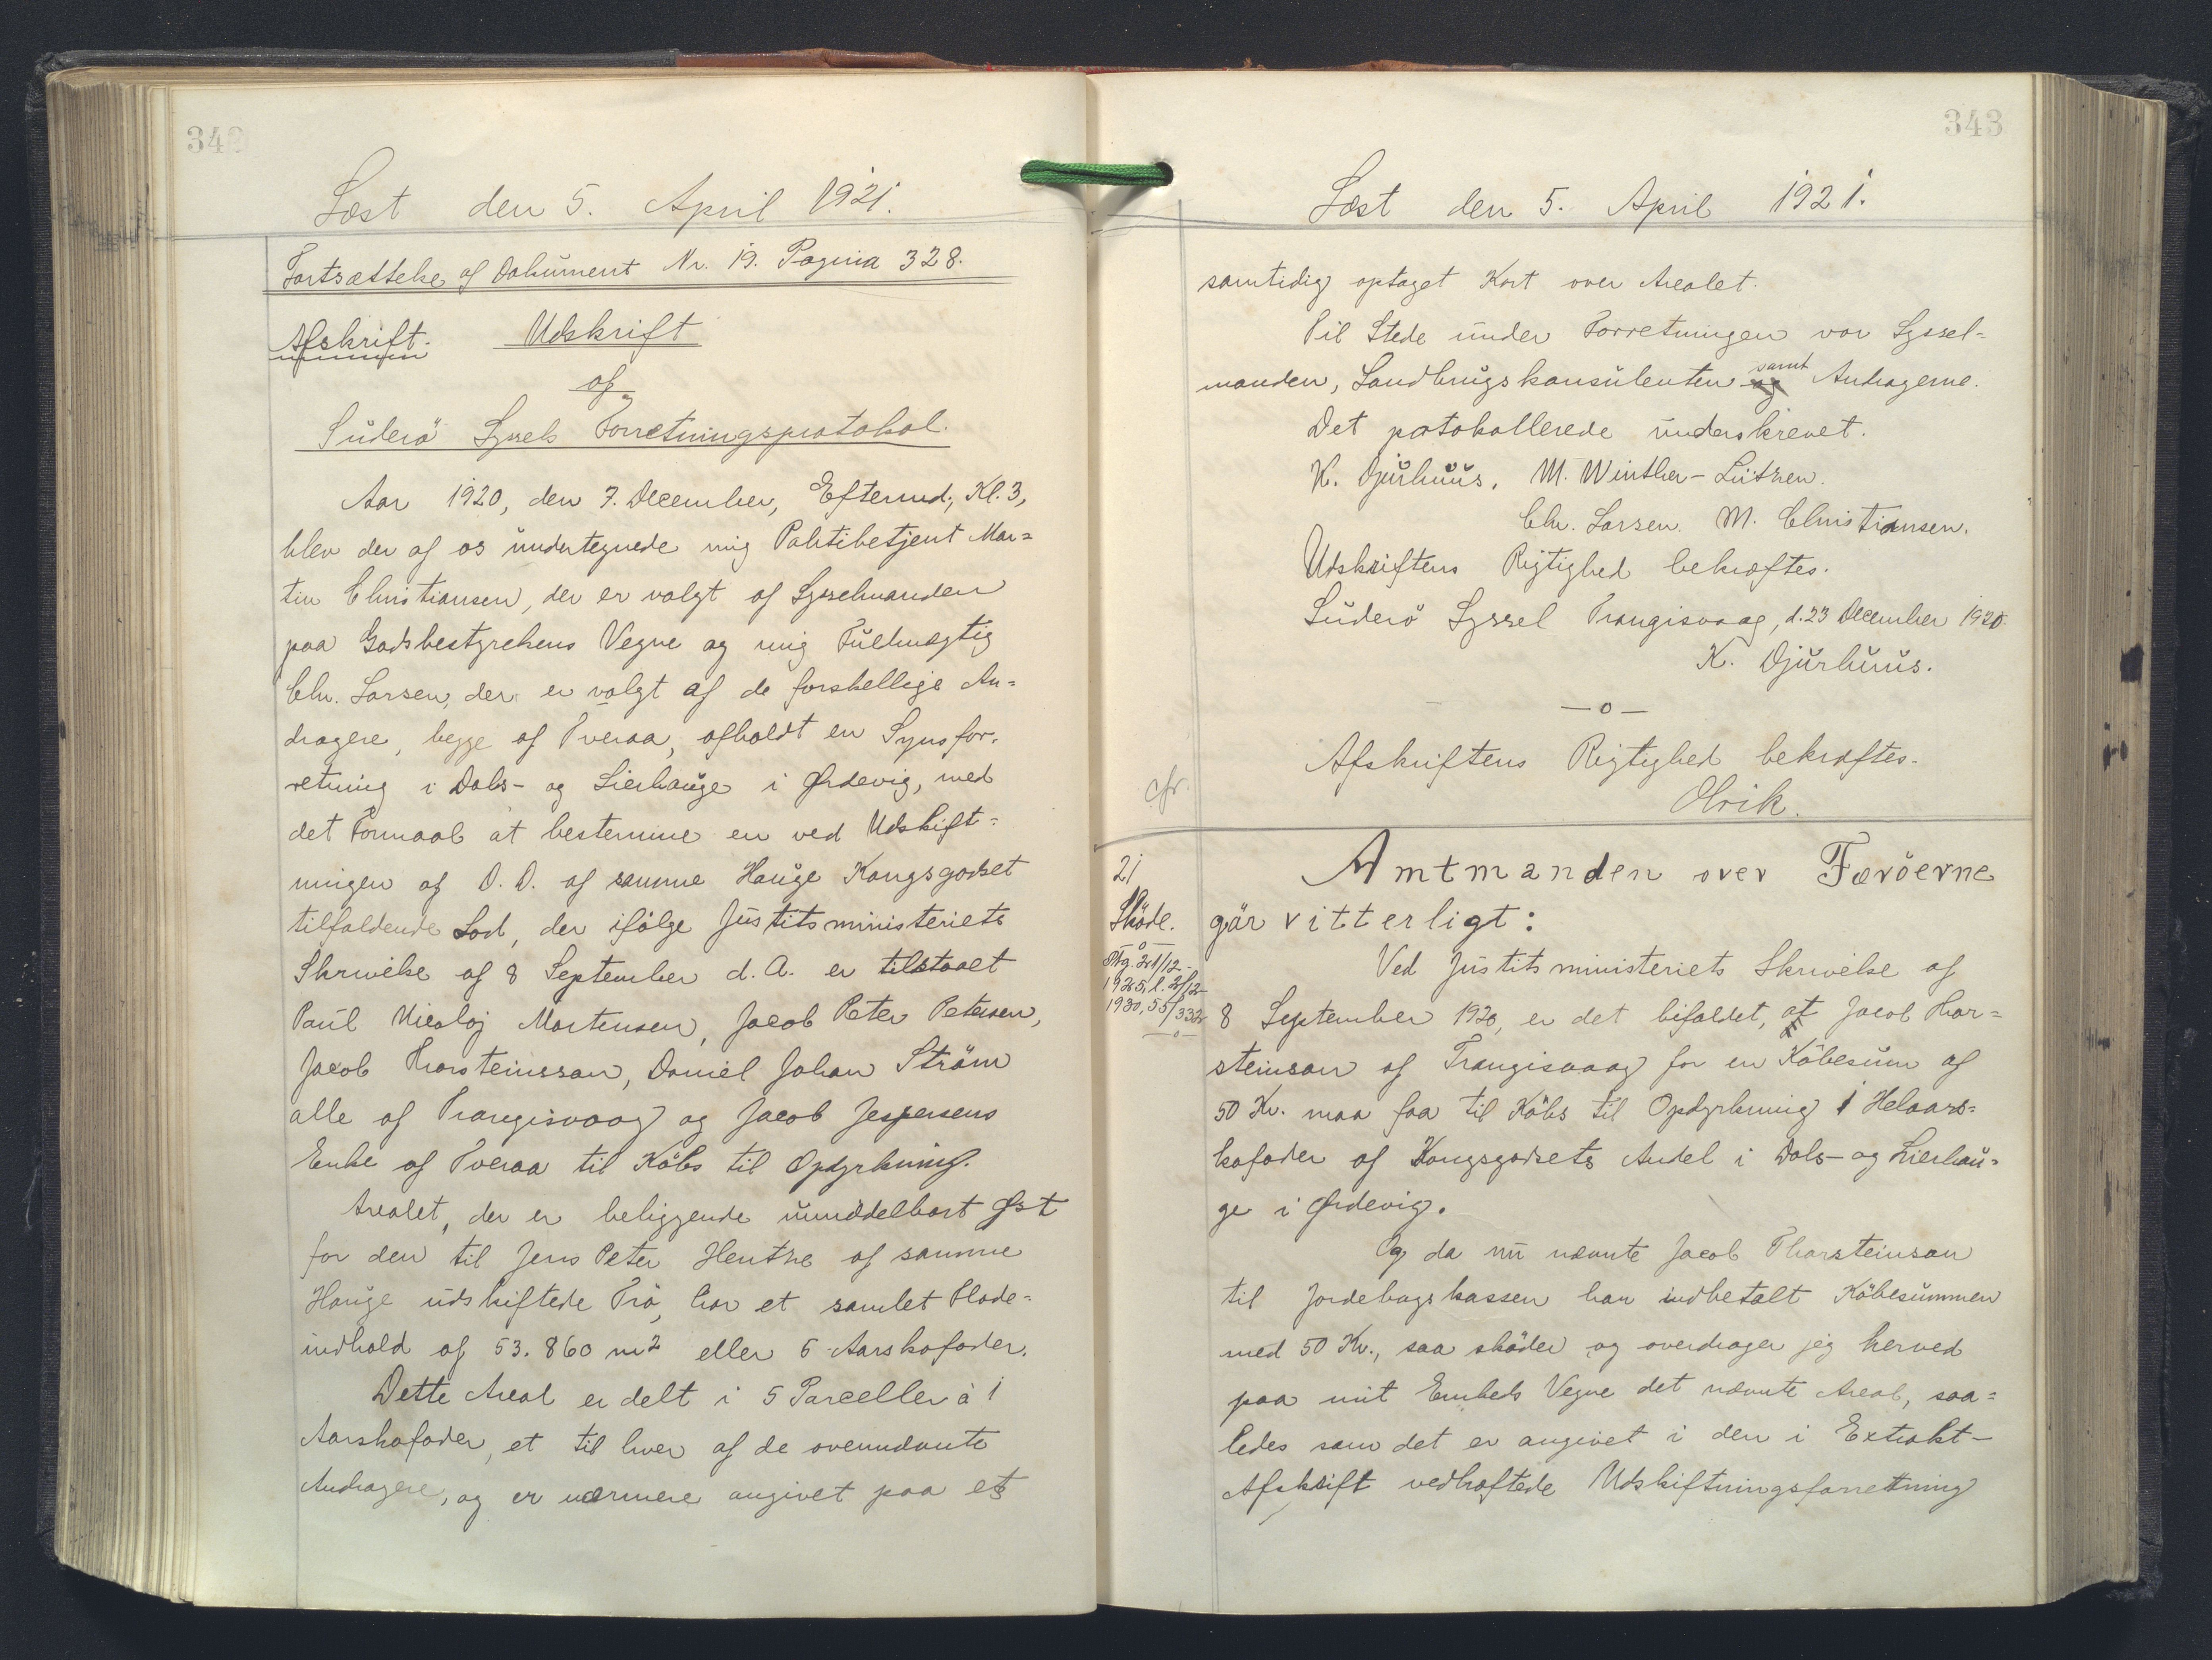 342
Læst den 5. April 1921.
Fortsættelse af Dokument Nr. 19. Pagina 328.
Afskrift. Udskrift
af
Suderö Syssels Forretningsprotokol.
Aar 1920, den 7. December, Eftermd., Kl. 3,
blev der af os undertegnede mig Politibetjent Mar=
tin Christiansen, der er valgt af Sysselmanden
paa Godsbestyrelsens Vegne og mig Fuldmægtig
Chr. Larsen, der er valgt af de forskellige An=
dragere, begge af Tveraa, afholdt en Synsfor-
retning i Dals- og Lierhauge i Ørdevig, med
det Formaal at bestemme en ved Udskift=
ningen af D. D. af samme Hauge Kongsgodset
tilfaldende Lod, der ifölge Justitsministeriets
Skrivelse af 8 September d. A. er tilstaaet
Poul Nicolaj Mortensen, Jacob Peter Petersen,
Jacob Thorsteinsson, Daniel Johan Ström
alle af Trangisvaag og Jacob Jespersens
Enke af Tveraa til Köbs til Opdyrkning.
Arealet, der er beliggende umiddelbart Øst
for den til Jens Peter Hentze af samme
Hauge udskiftede Trö, har et samlet Flade-
indhold af 53.860 m2 eller 5 Aarskofoder.
Dette Areal er delt i 5 Parceller à 1
Aarskofoder, et til hver af de ovennævnte
Andragere, og er nærmere angivet paa et
343
Læst den 5. April 1921.
samtidig optaget Kort over Arealet.
Til Stede under Forretningen var Syssel-
manden, Landbrugskonsulenten samt Andragerne.
Det protokollerede underskrevet.
K. Djurhuus. M. Winther-Lützen.
Chr. Larsen. M. Christiansen.
Udskriftens Rigtighed bekræftes.
Suderö Syssel Trangisvaag, d. 23 December 1920.
K. Djurhuus.
—o—
Afskriftens Rigtighed bekræftes.
Olrik.
cfr.
21
Sköde.
—o—
Afg. 21/12-
1925, l. 2/12-
1930, 55/332
—o—
Amtmanden over Færöerne
gör vitterligt:
Ved Justitsministeriets Skrivelse af
8 September 1920, er det bifaldet, at Jacob Thor=
steinson af Trangisvaag for en Köbesum af
50 Kr. maa faa til Köbs til Opdyrkning 1 Helaars=
kofoder af Kongsgodsets Andel i Dals- og Lierhau=
ge i Ørdevig.
Og da nu nævnte Jacob Thorsteinson
til Jordebogskassen har indbetalt Köbesummen
med 50 Kr., saa sköder og overdrager jeg herved
paa mit Embeds Vegne det nævnte Areal, saa=
ledes som det er angivet i den i Extrakt-
Afskrift vedhæftede Udskiftningsforretning